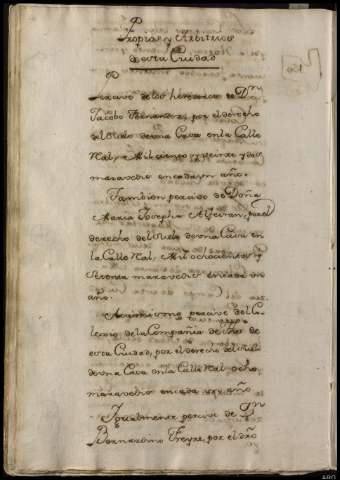 Propios y Arbitrios
de esta Ciudad
Percive de los herederos de Dn
Jacobo Fernandez, por el derecho
del suelo de una Casa en la Calle
Rl, Mil ciento y veinte y dos
maravedis en cada un año.
Tambien percive de Doña
Maria Josepha por el
derecho del suelo de una Casa en
la Calle Rl, Mil ochocientos y
setenta maravedis en cada un
año.
Asimismo percive del Co
lexio de la Compañia de de
esta Ciudad, por el derecho del suelo
de una Casa en la Calle Rl ocho
maravedis en cada un año
Igualmente percive de Dn
Bernardino Freyre, por el dro